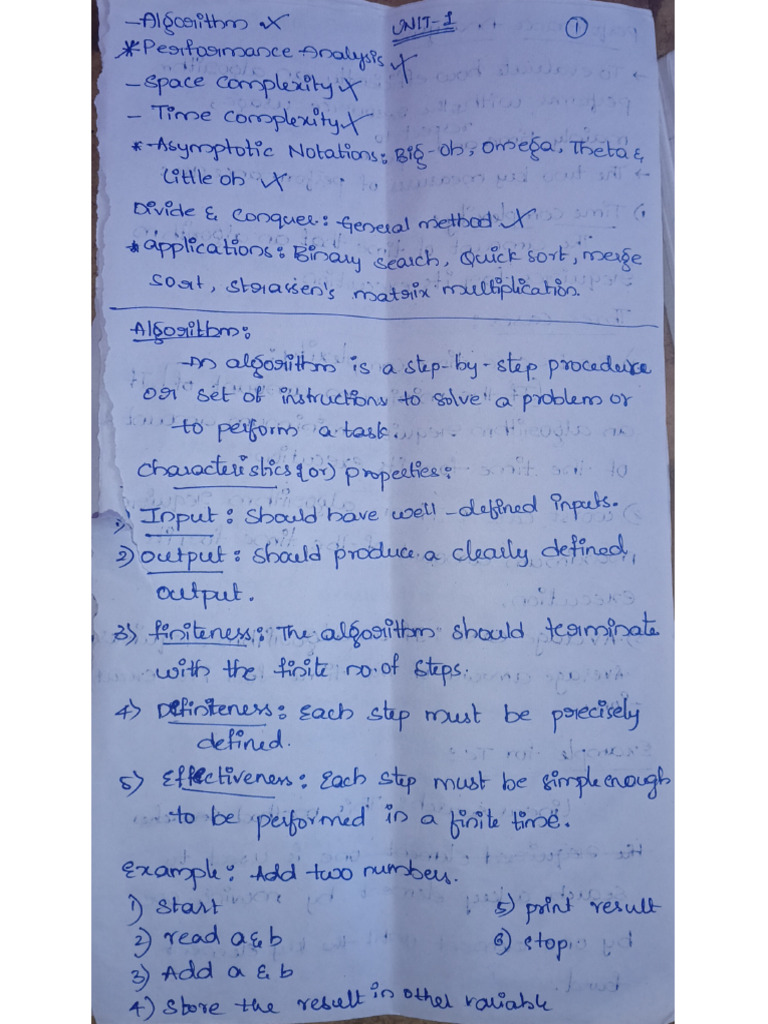 - Algorithm X
UNIT-1
1
* Performance Analysis X
- Space Complexity X
- Time Complexity X
* Asymptotic Notations: Big-oh, Omega, Theta &
Little oh X
Divide & Conquer: General method X
* applications: Binary Search, Quick Sort, merge
Sort, Strassen's matrix multiplication.
Algorithm:
An algorithm is a step-by-step procedure
or set of instructions to solve a problem or
to perform a task.
Characteristics (or) properties:
1) Input: Should have well-defined inputs.
2) Output: Should produce a clearly defined
output.
3) finiteness: The algorithm should terminate
with the finite no. of steps.
4) Definiteness: Each step must be precisely
defined.
5) Effectiveness: Each step must be simple enough
to be performed in a finite time.
Example: Add two numbers.
1) Start
2) read a & b
3) Add a & b
4) Store the result in other variable
5) print result
6) stop